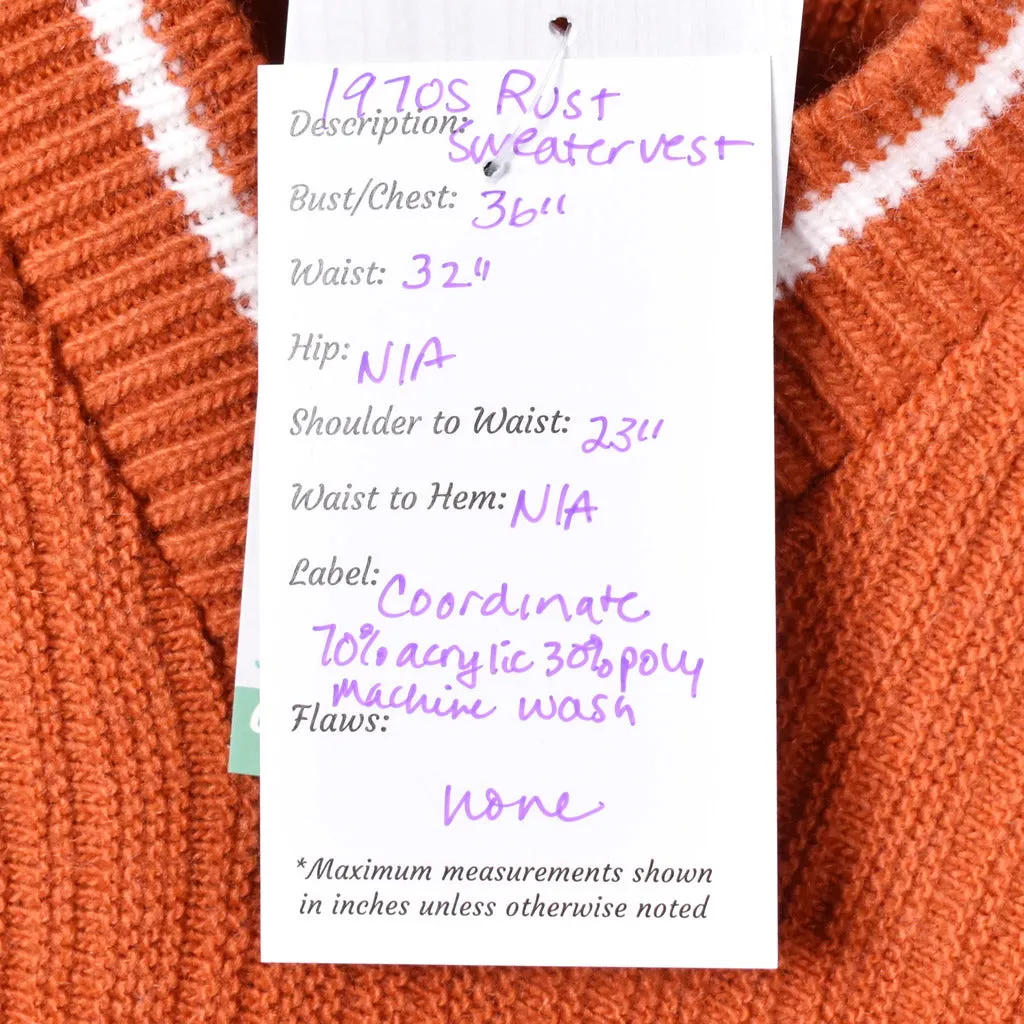 1970s Rust
Description:
Sweatervest
Bust/Chest: 36"
Waist: 32"
Hip: N/A
Shoulder to Waist: 23"
Waist to Hem: N/A
Label:
Coordinate
70% acrylic 30% poly
machine wash
Flaws:
none
*Maximum measurements shown
in inches unless otherwise noted